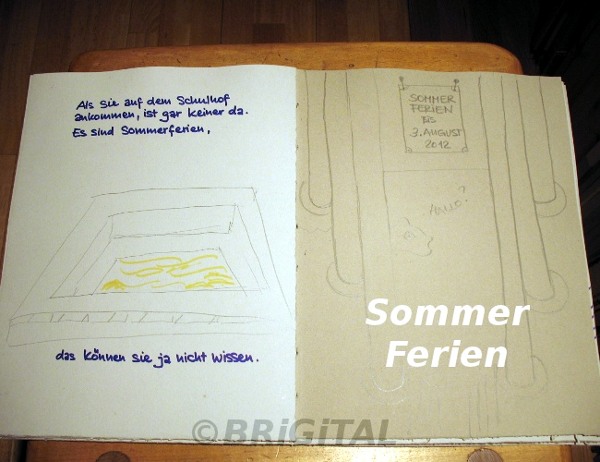 Als Sie auf dem Schulhof
ankommen, ist gar keiner da.
Es sind Sommerferien,
das können sie ja nicht wissen.
SOMMER
FERIEN
BIS
3. AUGUST
2012
Sommer
Ferien
©BRiGiTAL